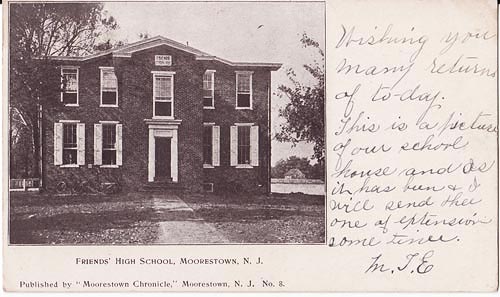 FRIENDS'
FRIENDS' HIGH SCHOOL, MOORESTOWN, N. J.
Published by "Moorestown Chronicle," Moorestown, N. J. No. 8.
Wishing you
many returns
of to-day.
This is a picture
of our school
house and as
it has ben & I
will send thee
one of extension
some time.
M. T. E